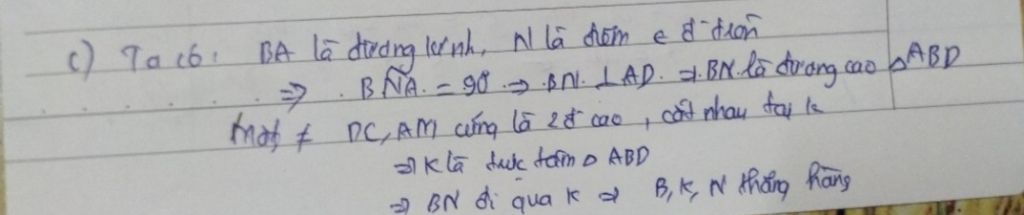 c) Ta có: BA là đường kính, N là điểm ∈ đ tròn
⇒ BNA = 90 ⇒ BN ⊥ AD ⇒ BN là đường cao △ABD
Mặt ≠ DC, AM cũng là 2 đ cao, cắt nhau tại k
⇒ K là trực tâm △ ABD
⇒ BN đi qua K ⇒ B, K, N thẳng hàng